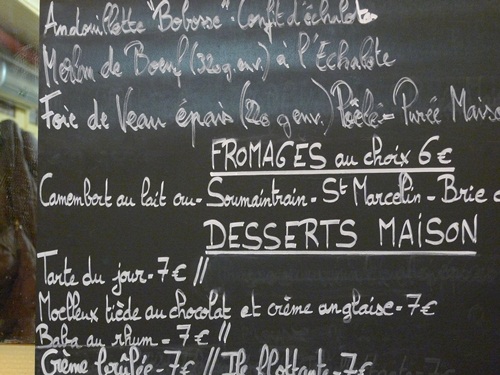 Andouillette "Bobosse" - Confit d'échalote
Merlan de Boeuf (320g. env.) à l'Echalote
Foie de Veau épais (220 g env.) Poêlé - Purée Maiso
FROMAGES au choix 6€
Camembert au lait cru - Soumaintrain - St Marcelin - Brie d
DESSERTS MAiSON
Tarte du jour - 7€ //
Moelleux tiède au chocolat et crème anglaise - 7€
Baba au rhum - 7€ //
Crème brûlée - 7€ // Ile flottante - 7€